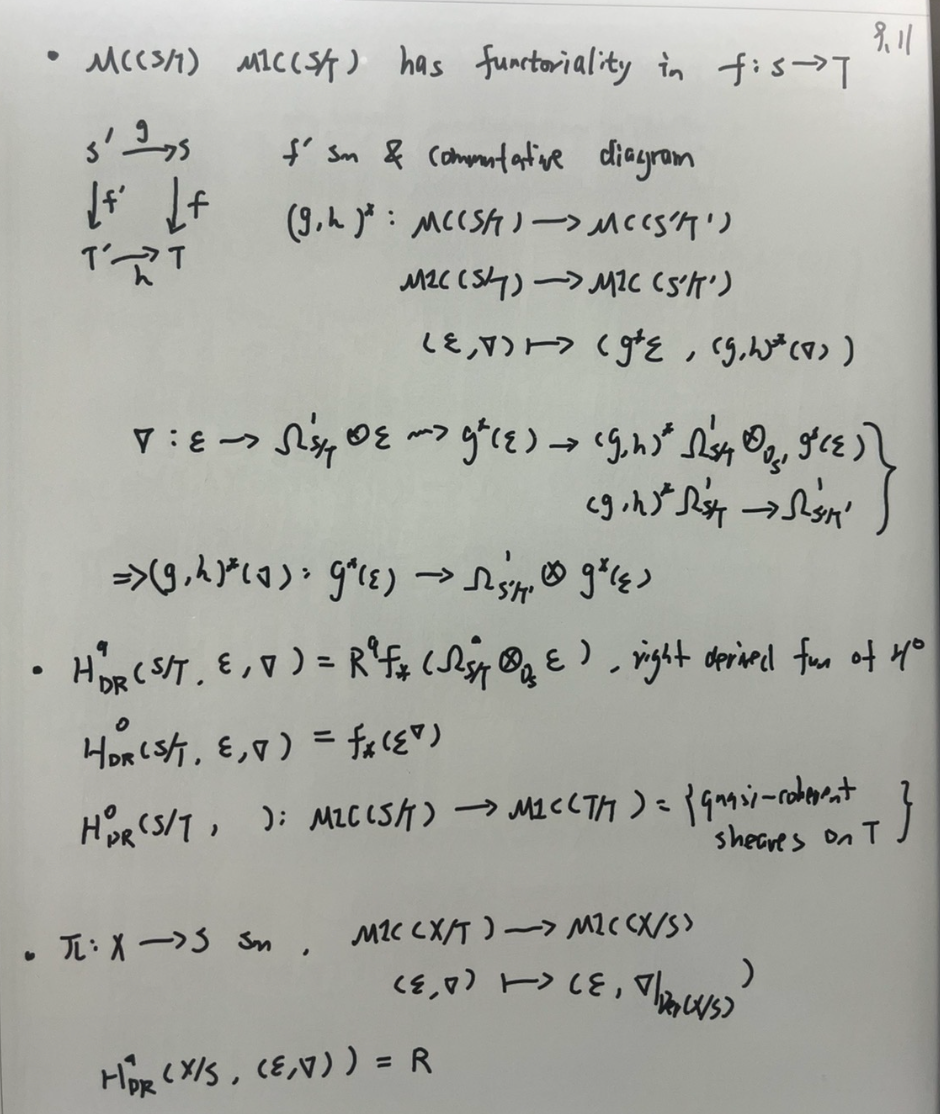 9.11
• MC(S/T) MIC(S/T) has functoriality in f: S → T
S' →^g S f' sm & commutative diagram
↓f' ↓f (g,h)^* : MC(S/T) → MC(S'/T')
T' →_h T MIC(S/T) → MIC(S'/T')
(ε,∇) ↦ (g^*ε, (g,h)^*(∇))
∇ : ε → Ω^1_{S/T} ⊗ ε ⇝ g^*(ε) → (g,h)^* Ω^1_{S/T} ⊗_{O_{S'}} g^*(ε) }
(g,h)^* Ω^1_{S/T} → Ω^1_{S'/T'}
⇒ (g,h)^*(∇) : g^*(ε) → Ω^1_{S'/T'} ⊗ g^*(ε)
• H^q_{DR}(S/T, ε, ∇) = R^q f_*(Ω^•_{S/T} ⊗_{O_S} ε), right derived fun of H^0
H^0_{DR}(S/T, ε, ∇) = f_*(ε^∇)
H^0_{DR}(S/T, ): MIC(S/T) → MIC(T/T) = {quasi-coherent
sheaves on T}
• π: X → S sm, MIC(X/T) → MIC(X/S)
(ε,∇) ↦ (ε, ∇|_{Der(X/S)})
H^q_{DR}(X/S, (ε,∇)) = R